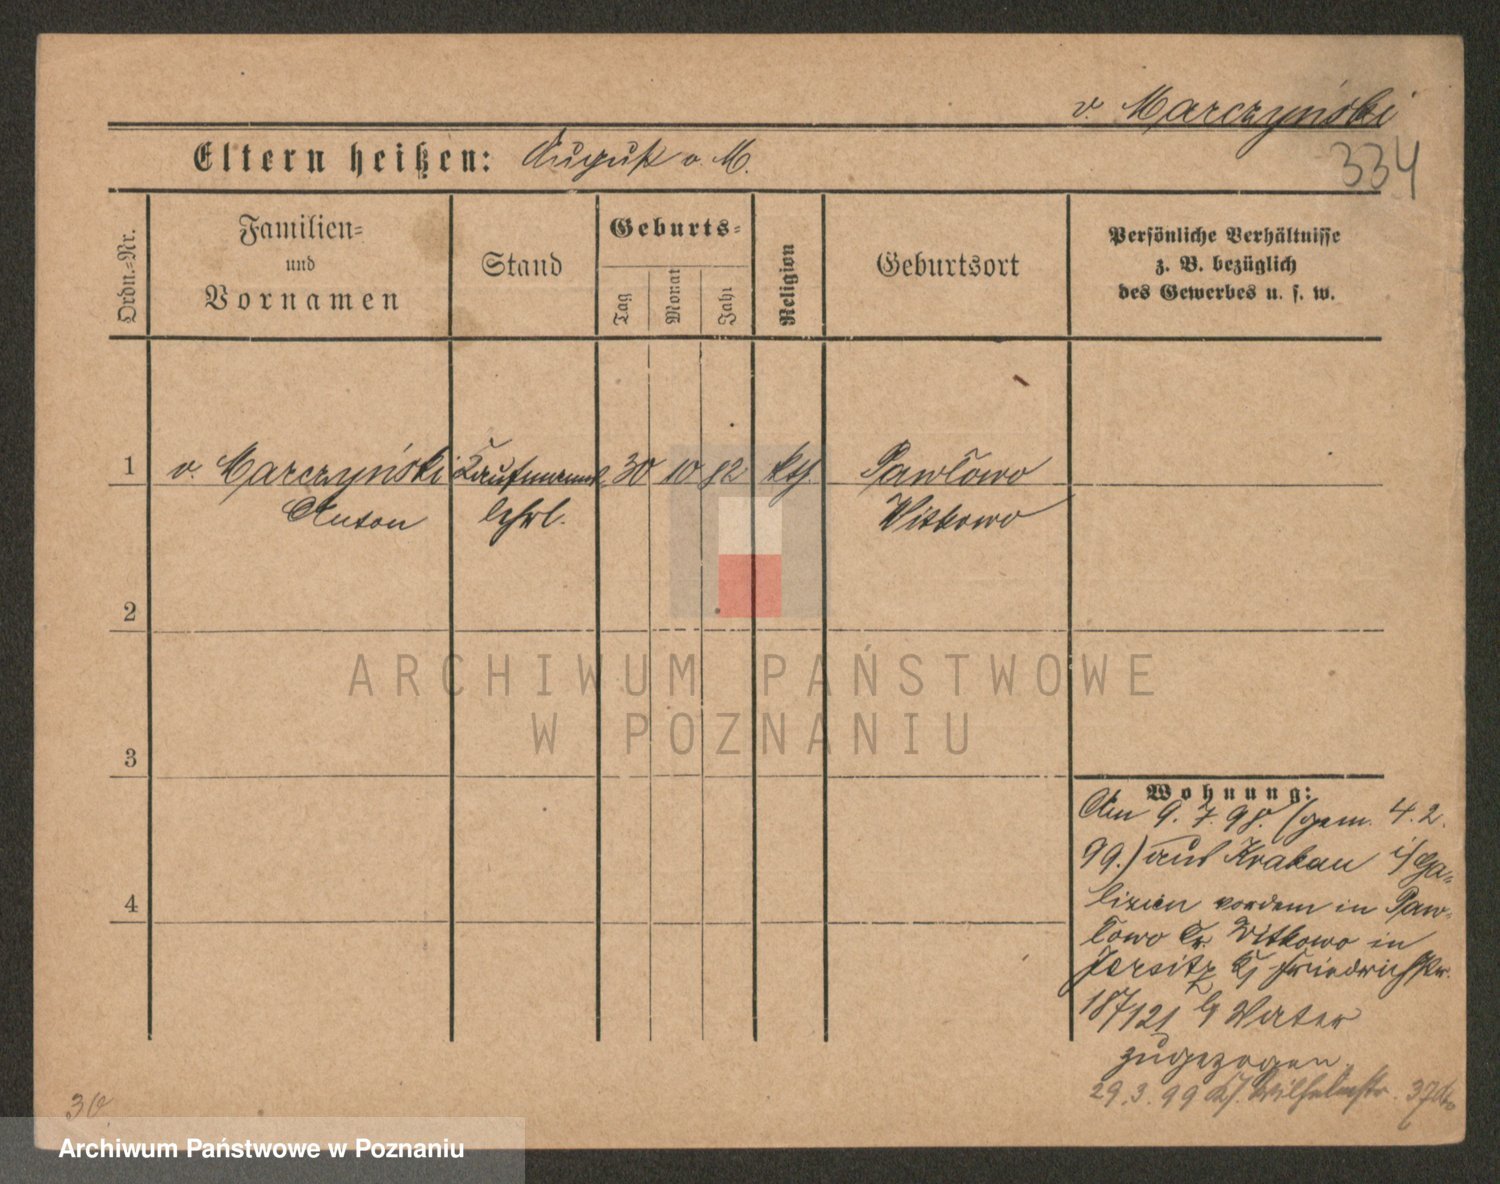 v. Marczyński
Eltern heißen: August v. M.
334
Ordn.-Nr.
Familien-
und
Vornamen
Stand
Geburts-
Tag
Monat
Jahr
Religion
Geburtsort
Persönliche Verhältnisse
z. B. bezüglich
des Gewerbes u. s. w.
1 v. Marczyński Kaufmanns 30 10 82 kth. Pawłowo
Anton lehrl. Witkowo
2
3
4
Wohnung:
Am 9. 7. 98. (gem. 4. 2.
99.) aus Krakau i/Ga-
lizien vordem in Paw-
łowo Kr. Witkowo in
Jersitz Friedrichstr.
18/121 b/ Vater
zugezogen.
29. 3. 99 Wilhelmstr. 37
30
ARCHIWUM PAŃSTWOWE
W POZNANIU
Archiwum Państwowe w Poznaniu